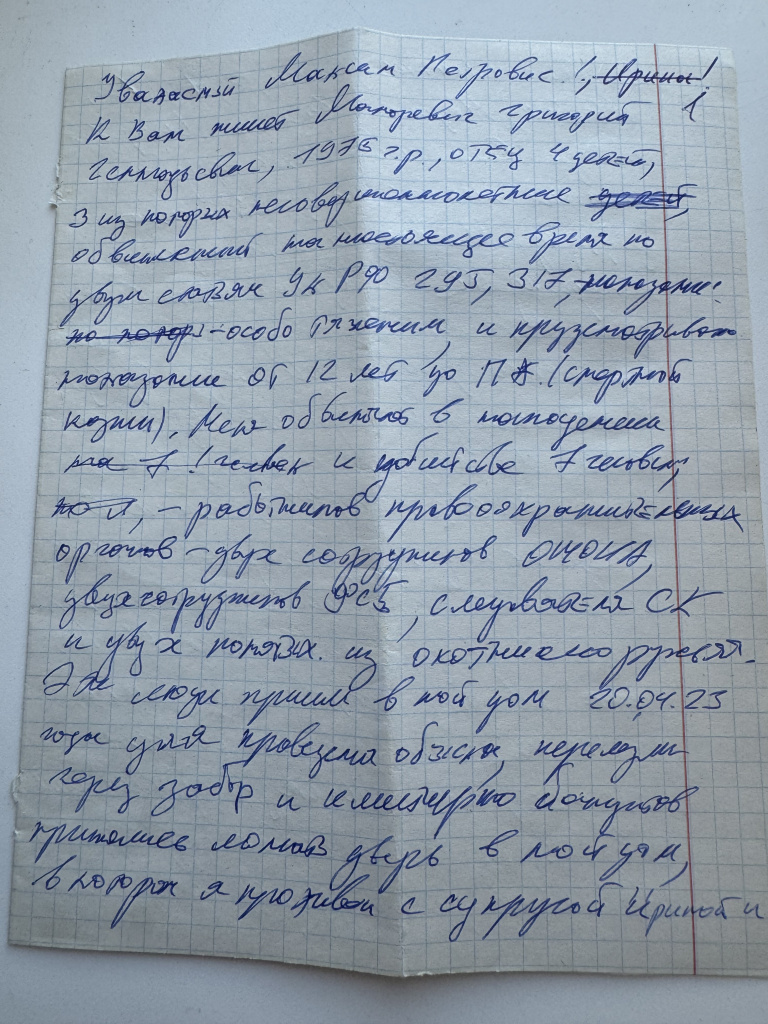 Уважаемый Максим Петрович!, Ирина!
1
К Вам пишет Григорий
Геннадьевич, 1975 г.р., отец 4 детей,
3 из которых несовершеннолетние детей,
обвиняемый на настоящее время по
двум статьям УК РФ 295, 317,
-особо тяжким, и предусматривают
наказание от 12 лет до (смертной
казни). Меня обвиняют в нападении
на 7 человек и убийстве 7 человек,
- работников правоохранительных
органов - двух сотрудников ОМОНа,
двух сотрудников ФСБ, следователя СК
и двух понятых. из охотничьего ружья.
Эти люди пришли в мой дом 20.04.23
года для проведения обыска, перелезли
через забор и
принялись ломать дверь в мой дом,
в котором я проживаю с супругой Ириной и